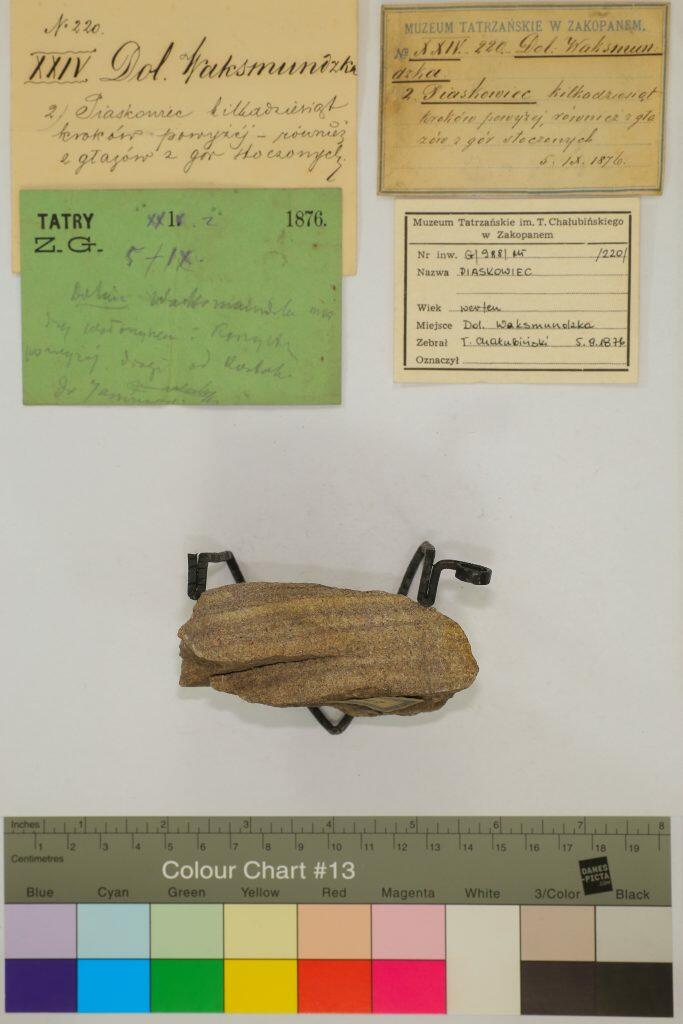 N. 220.
XXIV Dol. Waksmundzka
2) Piaskowiec kilkadziesiąt
kroków powyżej – również
z głazów z gór stoczonych.
MUZEUM TATRZAŃSKIE W ZAKOPANEM.
№ XXIV. 220. Dol. Waksmun-
dzka
2. Piaskowiec kilkadziesiąt
kroków powyżej również z gła
zów z gór stoczonych
5. IX. 1876.
TATRY 1876.
Z. G.
5/IX.
Muzeum Tatrzańskie im. T. Chałubińskiego
w Zakopanem
Nr inw. G/988/MT /220/
Nazwa PIASKOWIEC
Wiek werfen
Miejsce Dol. Waksmundzka
Zebrał T. Chałubiński 5.9.1876
Oznaczył
Inches 1 2 3 4 5 6 7 8
1 2 3 4 5 6 7 8 9 10 11 12 13 14 15 16 17 18 19
Centimetres
Colour Chart #13
DANES
-PICTA
.COM
Blue Cyan Green Yellow Red Magenta White 3/Color Black